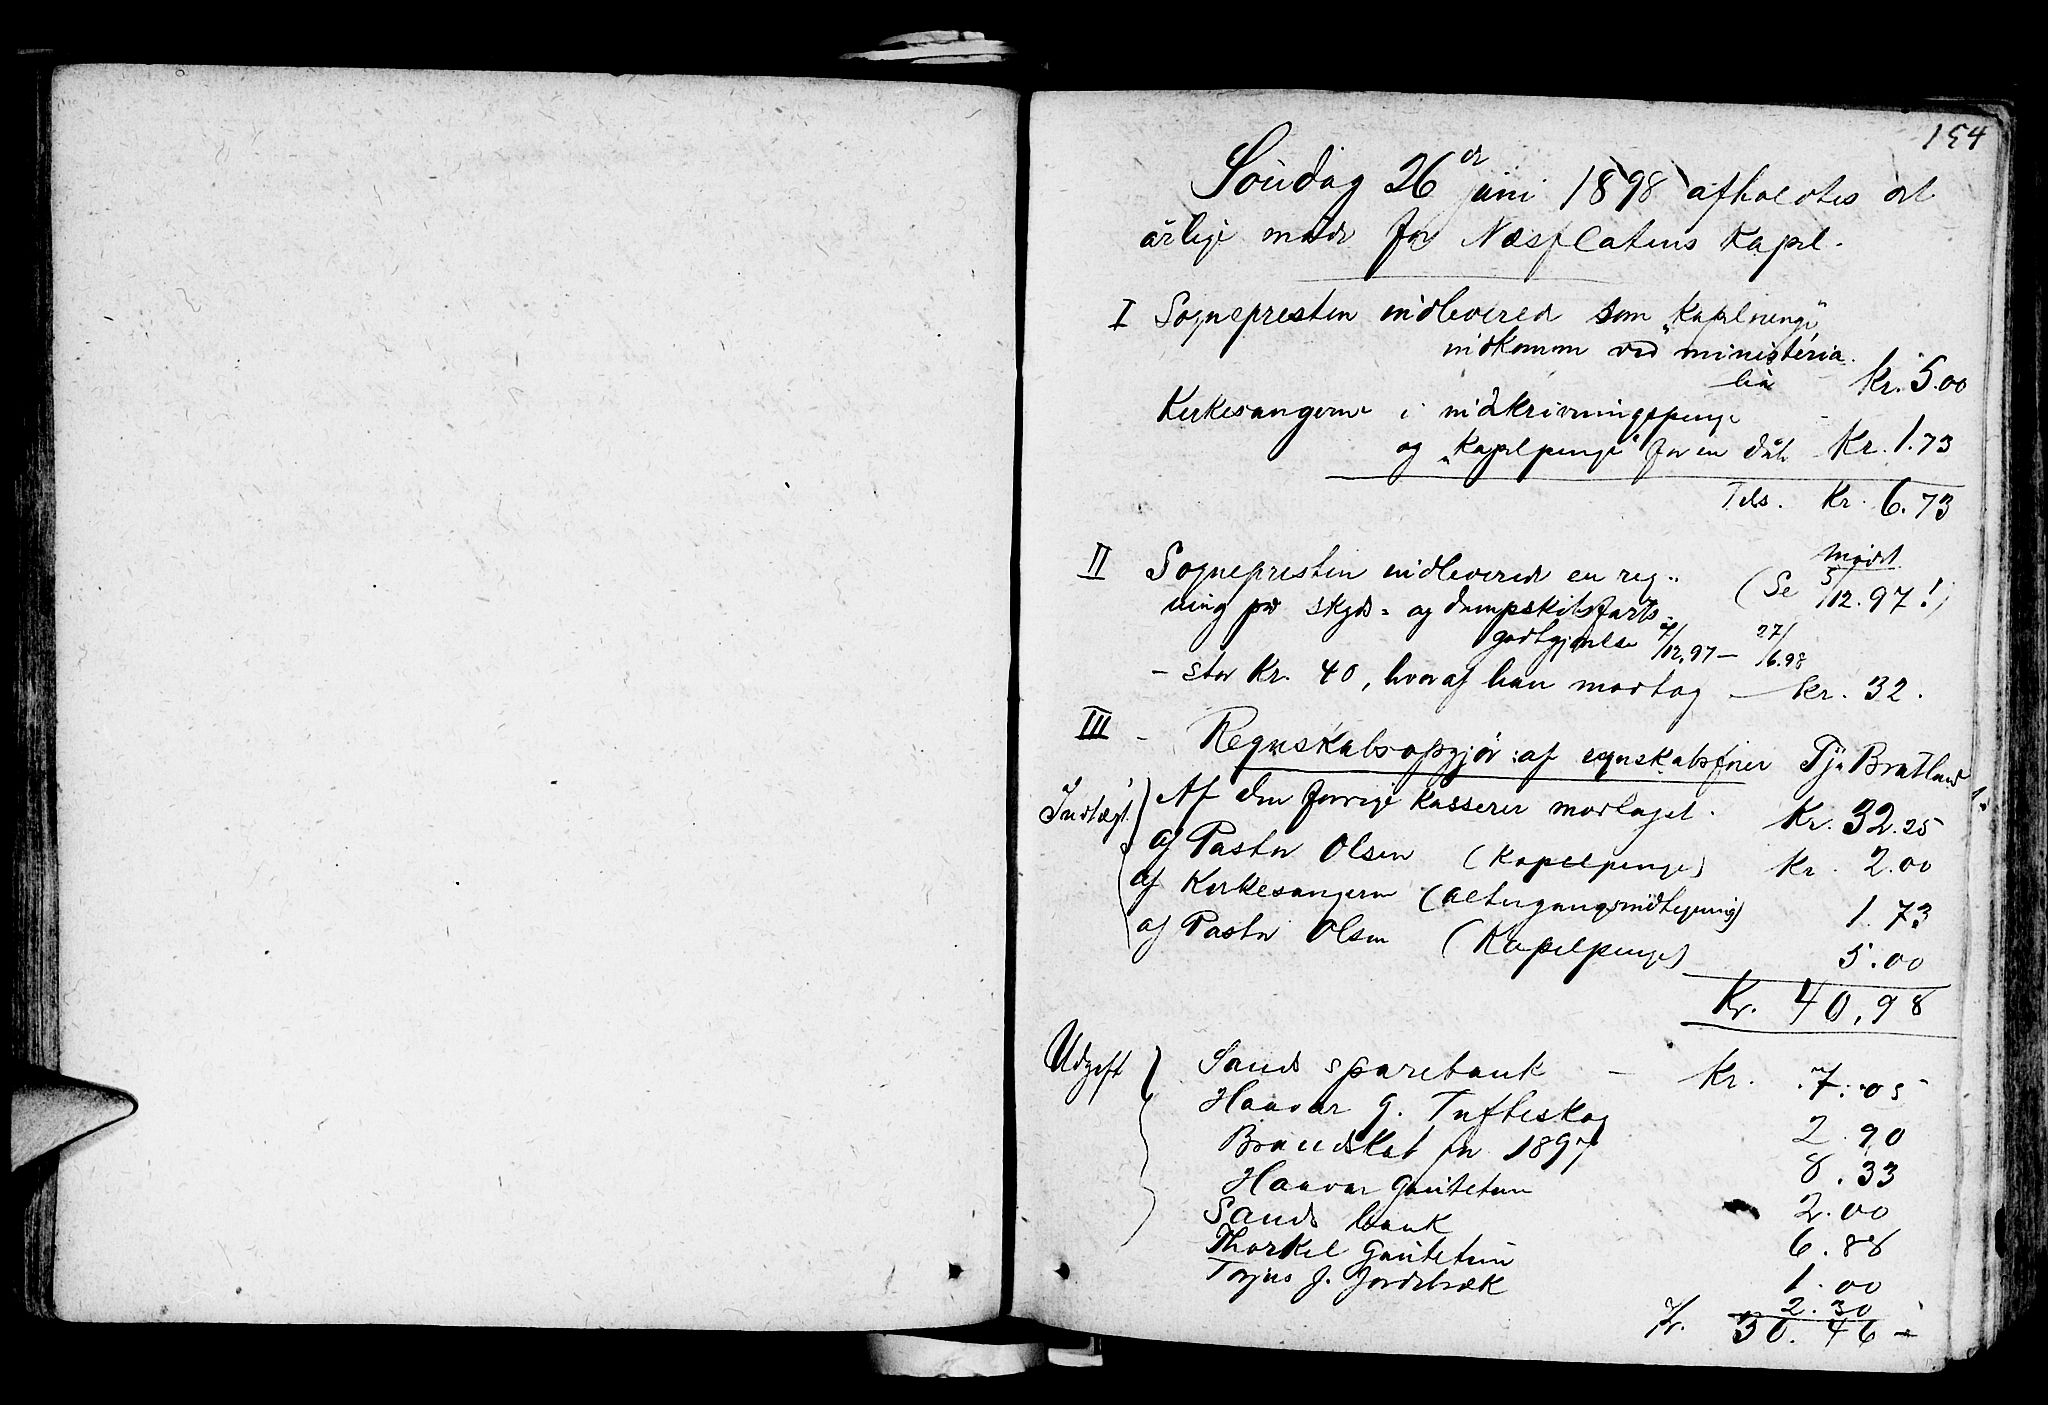 154
Søndag 26de juni 1898 afholdtes det
årlige møde for Næsflatens Kapel.
I Sognepresten indleverede som „Kapelpenge“
indkomm ved ministeria-
lia Kr. 5.00
Kirkesangeren i indskrivningspenge
og „Kapelpenge“ for en dåb Kr. 1.73
Tils. Kr. 6.73
II Sognepresten indleverede en reg-
(Se mødet 5/12.97!)
ning på skyds- og dampskibsfarts-
godtgjørelse /12.97 – 27/6.98
– stor Kr. 40, hvoraf han modtog – Kr. 32.
III – Regnskabsopgjør: af regnskabsfører Tj. Bratland
Indtægt. Af den forrige kasserer modtaget. Kr. 32.25
af Pastor Olsen (Kapelpenge) Kr. 2.00
af Kirkesangeren (altergangsindtegning) 1.73
af Pastor Olsen (Kapelpenge) 5.00
Kr. 40,98
Udgift Sands sparebank – Kr. 7.05
Haavar G. Tufteskog 2.90
Brandskat for 1897 8.33
Haavar Gautetun 2.00
Sands bank 6.88
Thorkel Gautetun 1.00
Torjus J. Jordebræk 2.30
Kr. 30.46